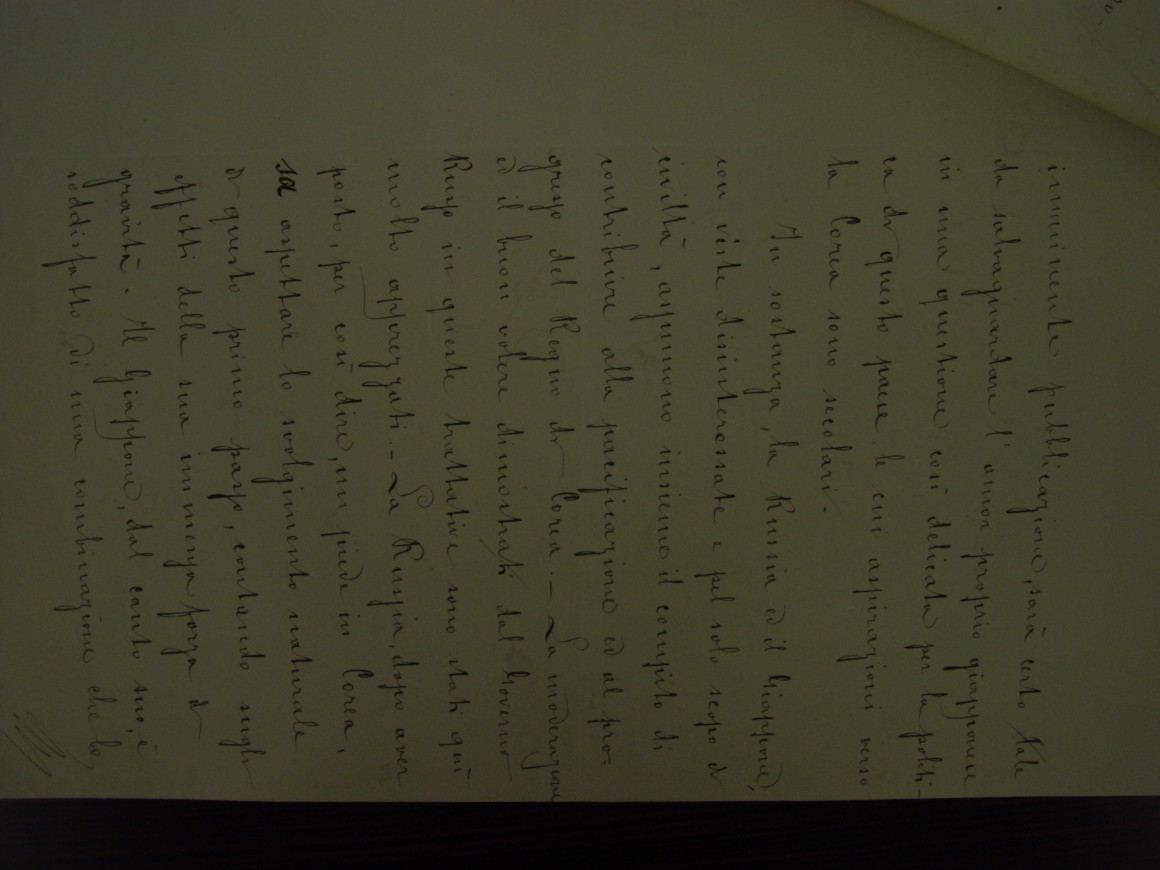 imminente pubblicazione, sarà certo tale
da salvaguardare l'amor proprio giapponese
in una questione così delicata per la politi-
ca di questo paese le cui aspirazioni verso
la Corea sono secolari.
In sostanza, la Russia ed il Giappone,
con veste disinteressate e pel solo scopo di
civiltà, assumono insieme il compito di
contribuire alla pacificazione ed al pro-
gresso del Regno di Corea. — La moderazione
ed il buon volere dimostrati dal Governo
Russo in queste trattative sono stati qui
molto apprezzati. — La Russia, dopo aver
posto, per così dire, un piede in Corea,
sa aspettare lo svolgimento naturale
di questo primo passo, contando sugli
effetti della sua immensa forza di
gravità. Il Giappone, dal canto suo, è
soddisfatto di una combinazione che lo